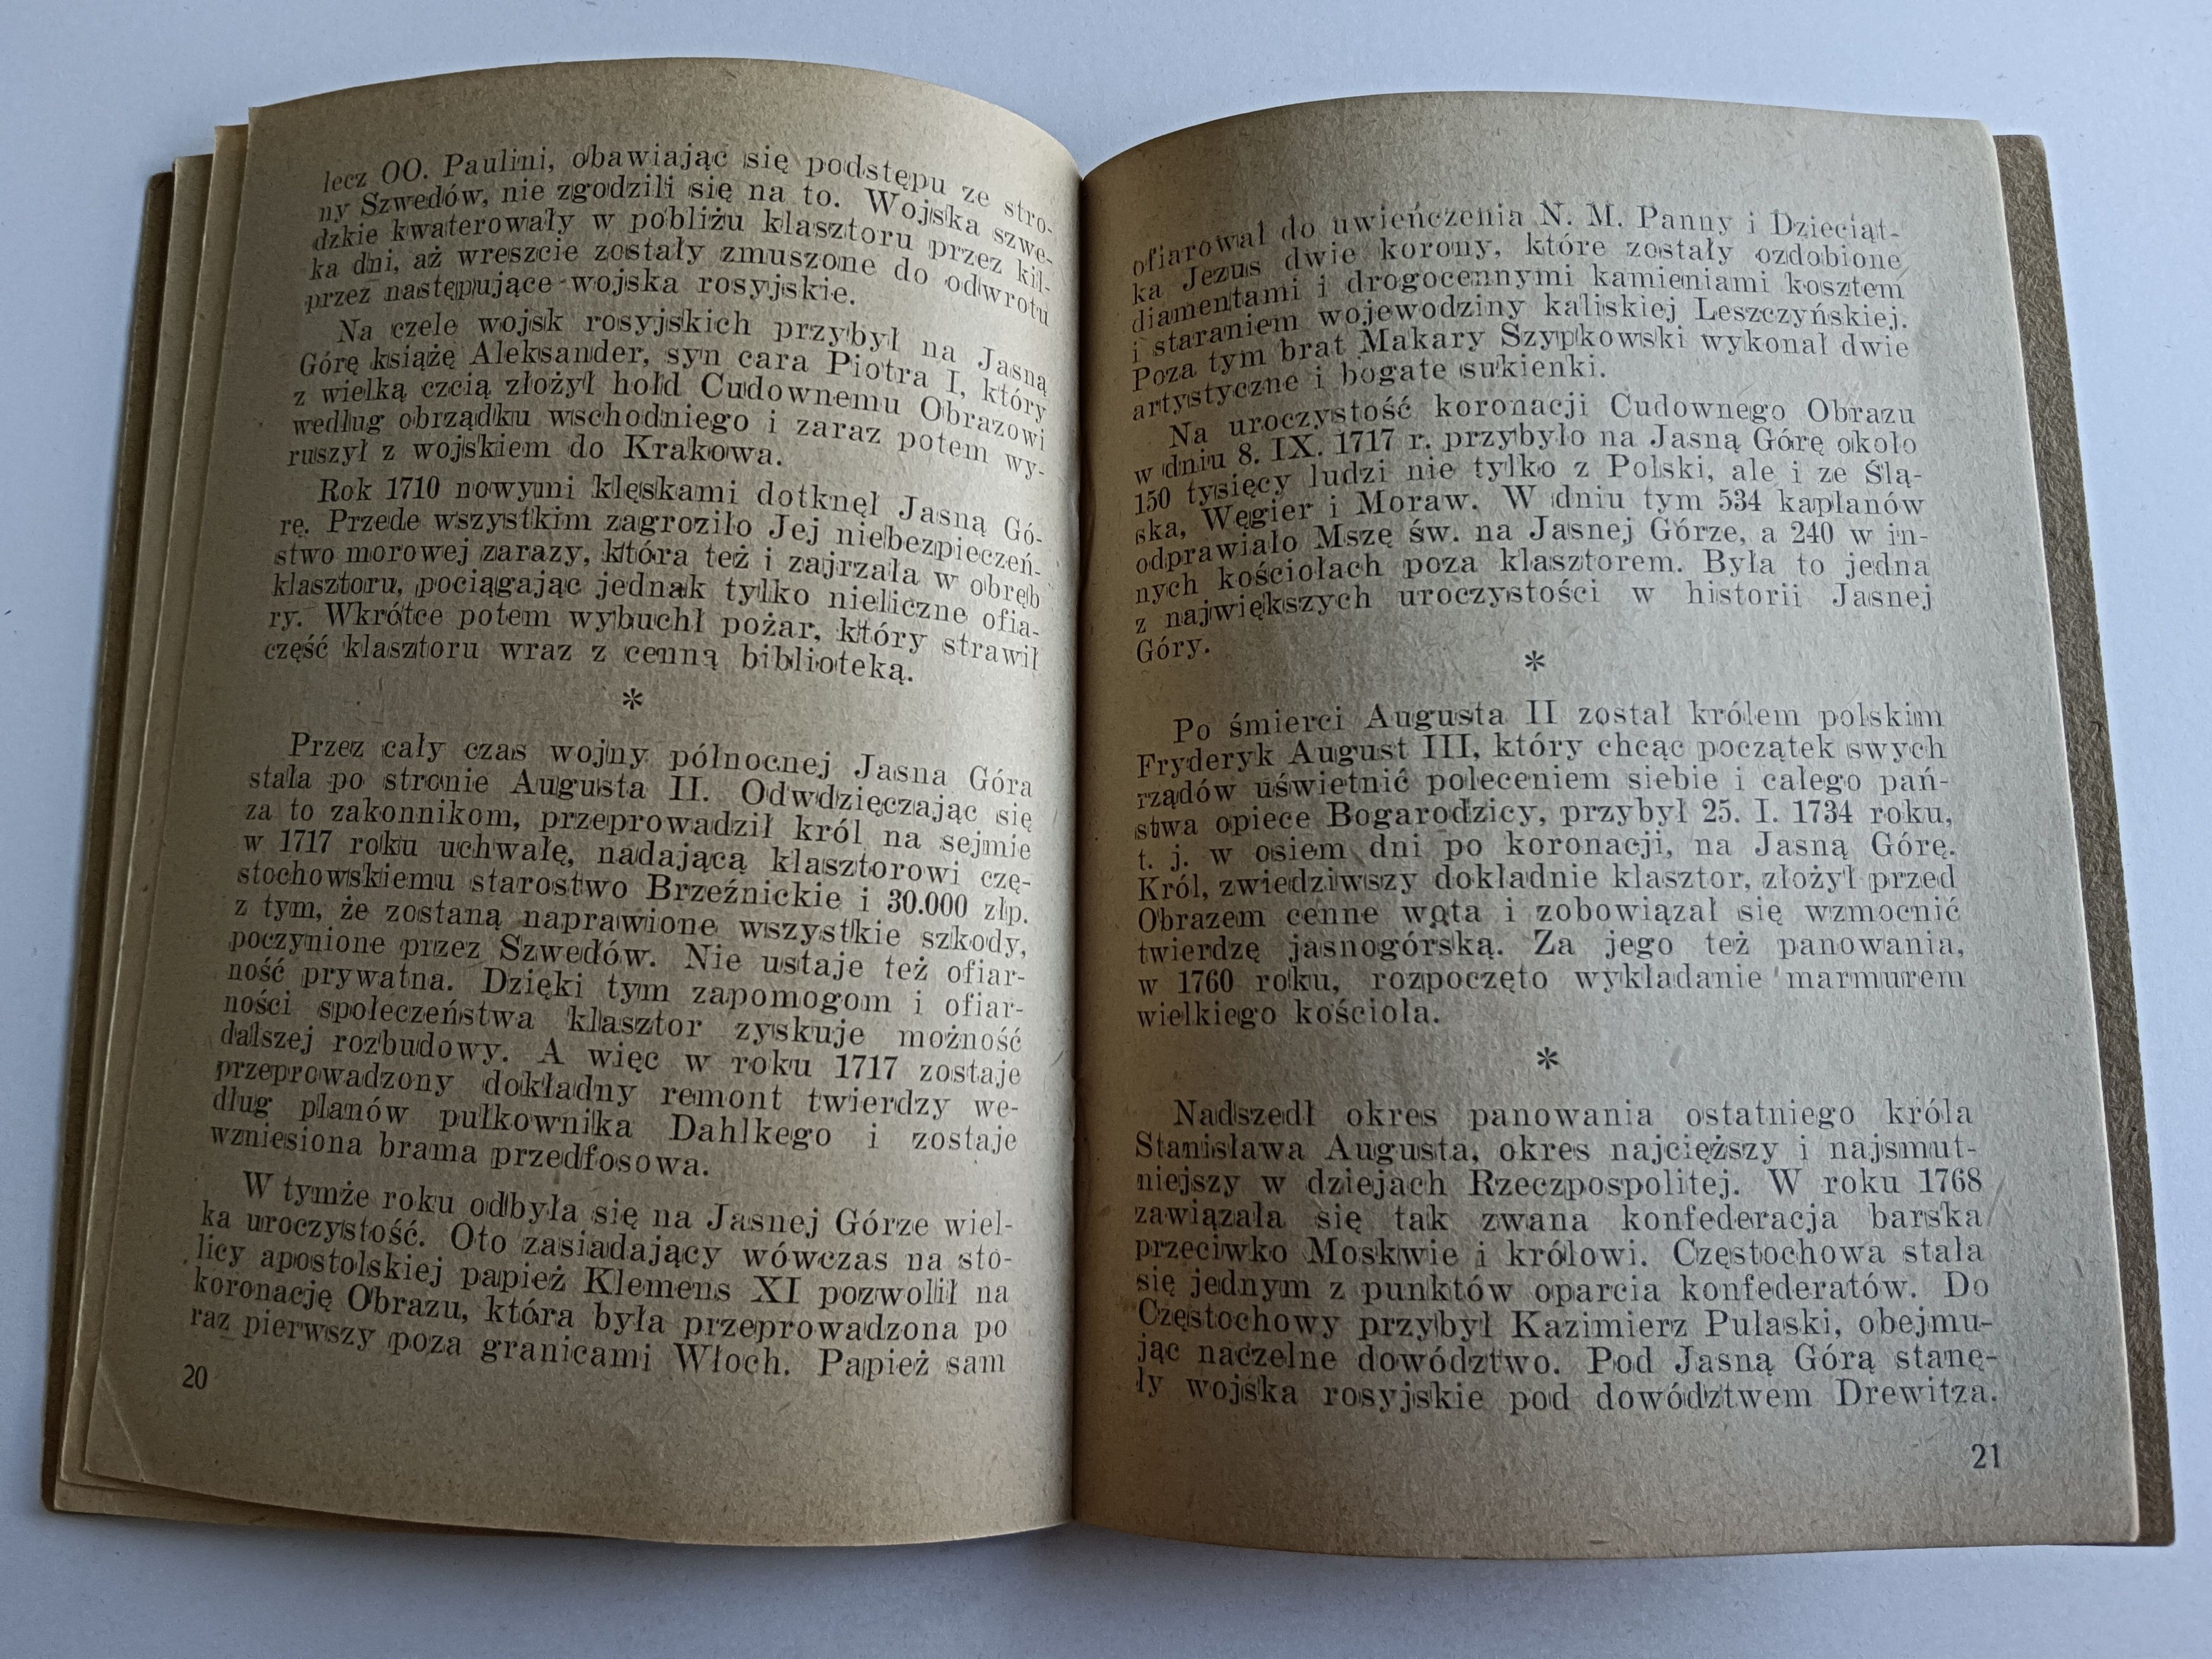 lecz OO. Paulini, obawiając się podstępu ze stro-
ny Szwedów, nie zgodzili się na to. Wojska szwe-
dzkie kwaterowały w pobliżu klasztoru przez kil-
ka dni, aż wreszcie zostały zmuszone do odwrotu
przez następujące wojska rosyjskie.
Na czele wojsk rosyjskich przybył na Jasną
Górę książę Aleksander, syn cara Piotra I, który
z wielką czcią złożył hołd Cudownemu Obrazowi
według obrządku wschodniego i zaraz potem wy-
ruszył z wojskiem do Krakowa.
Rok 1710 nowymi klęskami dotknął Jasną Gó-
rę. Przede wszystkim zagroziło Jej niebezpieczeń-
stwo morowej zarazy, która też i zajrzała w obręb
klasztoru, pociągając jednak tylko nieliczne ofia-
ry. Wkrótce potem wybuchł pożar, który strawił
część klasztoru wraz z cenną biblioteką.
*
Przez cały czas wojny północnej Jasna Góra
stała po stronie Augusta II. Odwdzięczając się
za to zakonnikom, przeprowadził król na sejmie
w 1717 roku uchwałę, nadającą klasztorowi czę-
stochowskiemu starostwo Brzeźnickie i 30.000 złp.
z tym, że zostaną naprawione wszystkie szkody,
poczynione przez Szwedów. Nie ustaje też ofiar-
ność prywatna. Dzięki tym zapomogom i ofiar-
ności społeczeństwa klasztor zyskuje możność
dalszej rozbudowy. A więc w roku 1717 zostaje
przeprowadzony dokładny remont twierdzy we-
dług planów pułkownika Dahlkego i zostaje
wzniesiona brama przedfosowa.
W tymże roku odbyła się na Jasnej Górze wiel-
ka uroczystość. Oto zasiadający wówczas na sto-
licy apostolskiej papież Klemens XI pozwolił na
koronację Obrazu, która była przeprowadzona po
raz pierwszy poza granicami Włoch. Papież sam
20
ofiarował do uwieńczenia N. M. Panny i Dzieciąt-
ka Jezus dwie korony, które zostały ozdobione
diamentami i drogocennymi kamieniami kosztem
i staraniem wojewodziny kaliskiej Leszczyńskiej.
Poza tym brat Makary Szypkowski wykonał dwie
artystyczne i bogate sukienki.
Na uroczystość koronacji Cudownego Obrazu
w dniu 8. IX. 1717 r. przybyło na Jasną Górę około
150 tysięcy ludzi nie tylko z Polski, ale i ze Ślą-
ska, Węgier i Moraw. W dniu tym 534 kapłanów
odprawiało Mszę św. na Jasnej Górze, a 240 w in-
nych kościołach poza klasztorem. Była to jedna
z największych uroczystości w historii Jasnej
Góry.
*
Po śmierci Augusta II został królem polskim
Fryderyk August III, który chcąc początek swych
rządów uświetnić poleceniem siebie i całego pań-
stwa opiece Bogarodzicy, przybył 25. I. 1734 roku,
t. j. w osiem dni po koronacji, na Jasną Górę.
Król, zwiedziwszy dokładnie klasztor, złożył przed
Obrazem cenne wota i zobowiązał się wzmocnić
twierdzę jasnogórską. Za jego też panowania,
w 1760 roku, rozpoczęto wykładanie marmurem
wielkiego kościoła.
*
Nadszedł okres panowania ostatniego króla
Stanisława Augusta, okres najcięższy i najsmut-
niejszy w dziejach Rzeczpospolitej. W roku 1768
zawiązała się tak zwana konfederacja barska
przeciwko Moskwie i królowi. Częstochowa stała
się jednym z punktów oparcia konfederatów. Do
Częstochowy przybył Kazimierz Pułaski, obejmu-
jąc naczelne dowództwo. Pod Jasną Górą stanę-
ły wojska rosyjskie pod dowództwem Drewitza.
21